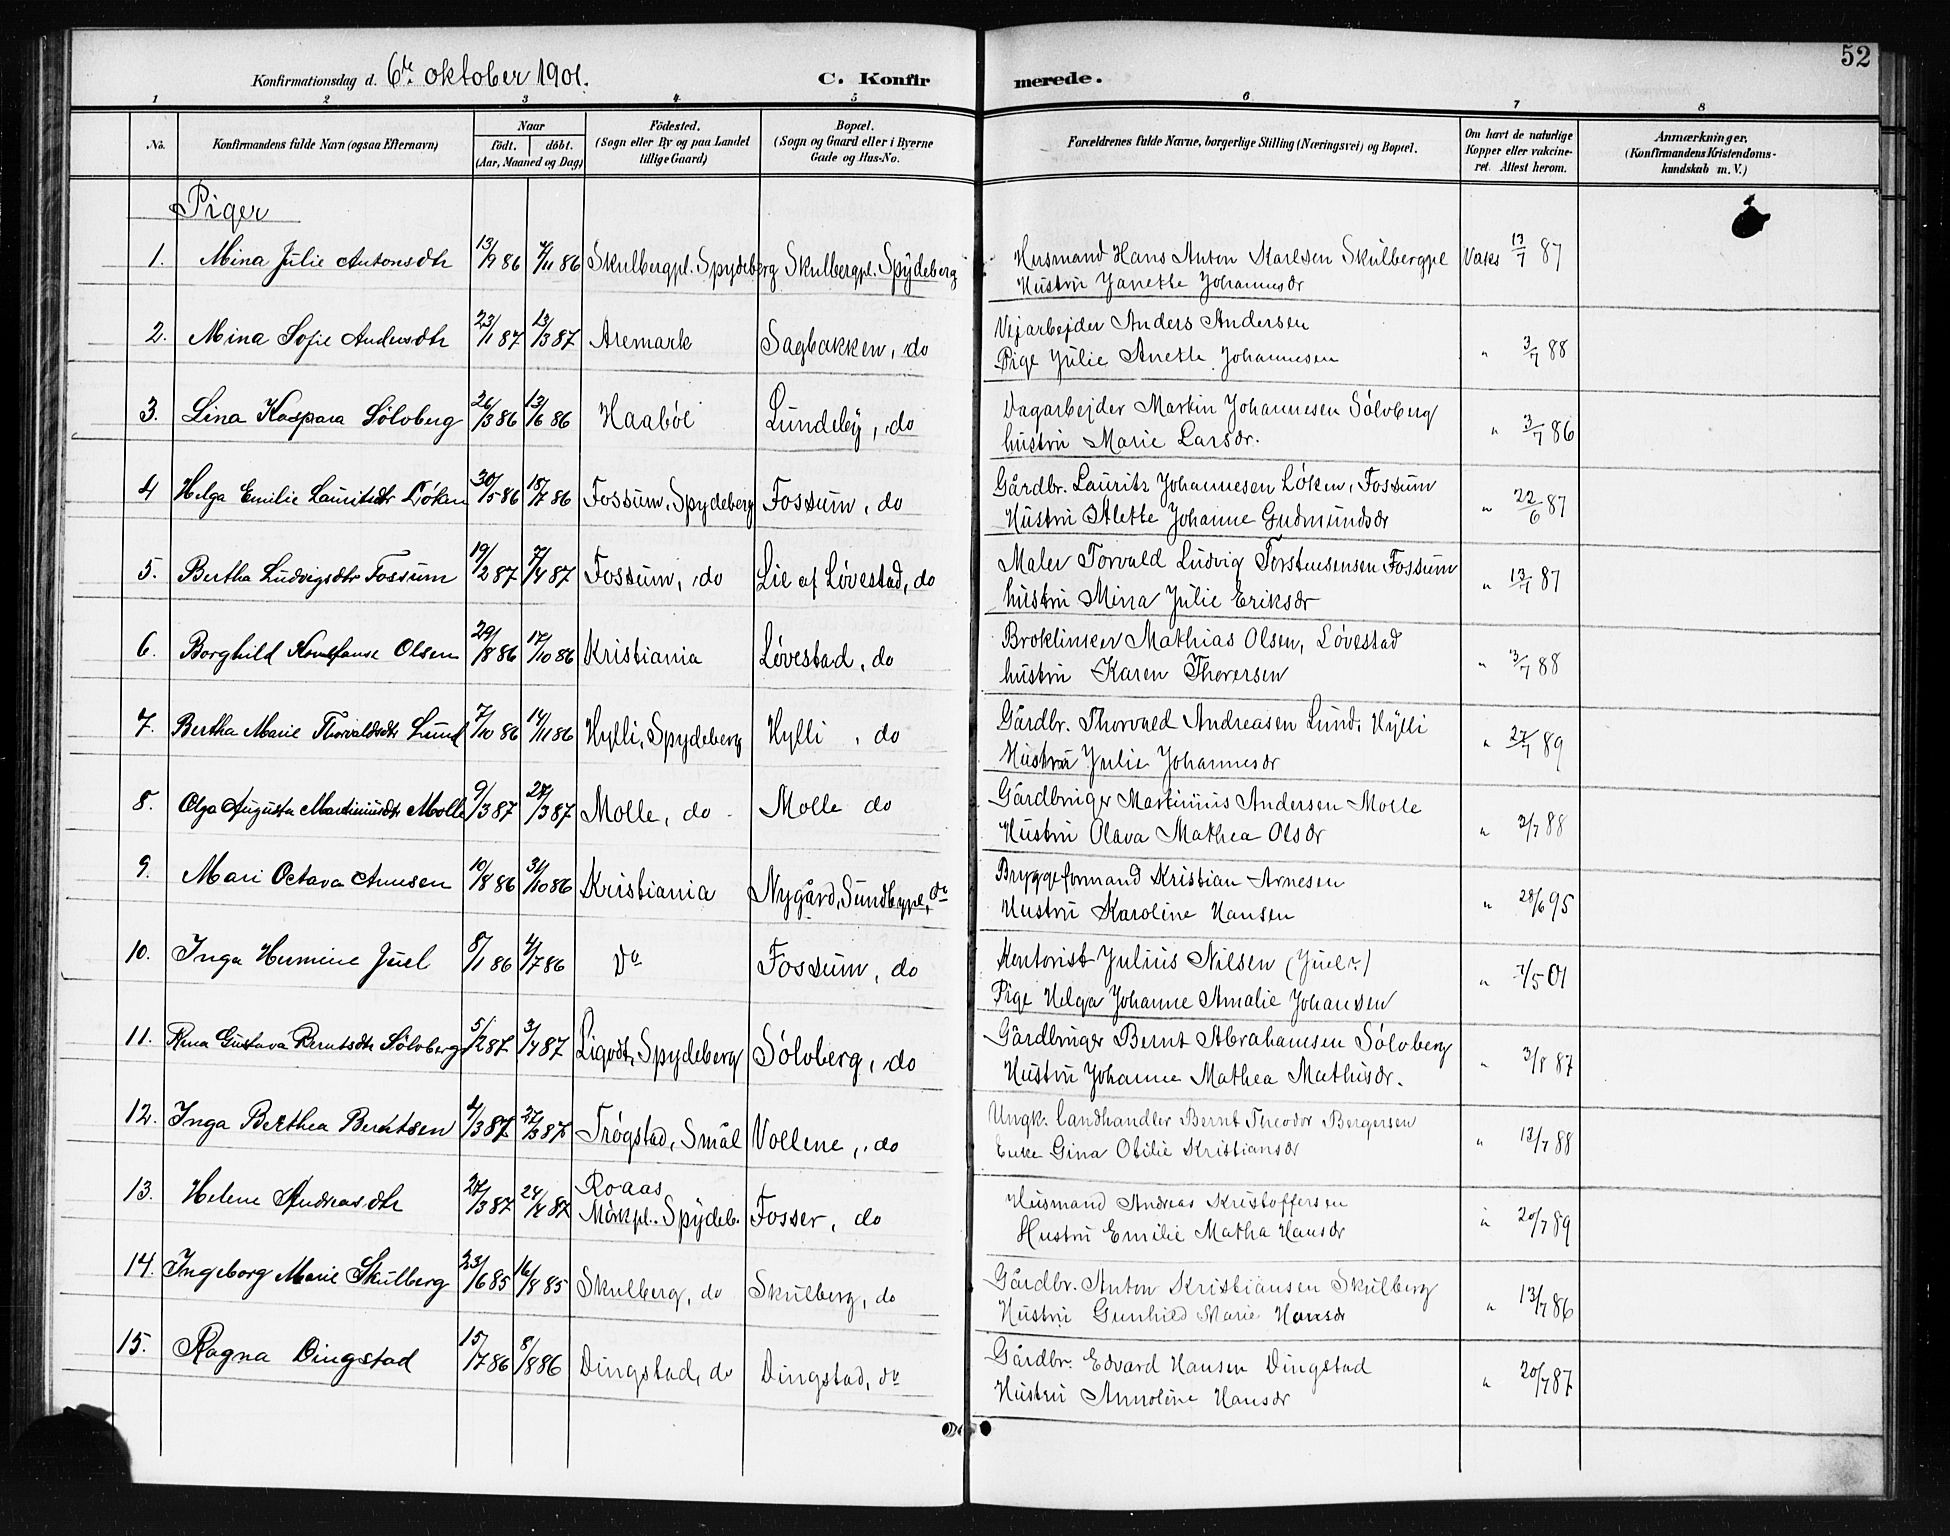 52
Konfirmationsdag d. 6te oktober 1901.
C. Konfirmerede.
1 2 3 4 5 6 7 8
No.
Konfirmandens fulde Navn (ogsaa Efternavn)
Naar
født. døbt.
(Aar, Maaned og Dag)
Fødested.
(Sogn eller By og paa Landet
tillige Gaard)
Bopæl.
(Sogn og Gaard eller i Byerne
Gade og Hus-No.
Forældrenes fulde Navne, borgerlige Stilling (Næringsvei) og Bopæl.
Om havt de naturlige
Kopper eller vakcine-
ret. Attest herom.
Anmærkninger.
(Konfirmandens Kristendoms-
kundskab m. V.)
Piger
1. Mina Julie Antonsdtr 13/9 86 7/11 86 Skulbergpl. Spydeberg Skulbergpl. Spydeberg Husmand Hans Anton Karlsen Skulbergpl Vakc 13/7 87
Hustru Janette Johannesdr
2. Mina Sofie Andersdtr 23/1 87 13/3 87 Aremark Sagbakken, do Vejarbejder Anders Andersen
Pige Julie Anette Johannesen " 3/7 88
3. Lina Kaspara Sølvberg 26/3 86 13/6 86 Haabøl Lundeby, do Dagarbejder Martin Johannesen Sølvberg
hustru Marie Larsdr. " 3/7 86
4 Helga Emilie Lauritsdtr Løken 30/5 86 18/7 86 Fossum, Spydeberg Fossum, do Gårdbr. Laurits Johannesen Løken, Fossum
Hustru Alette Johanne Gudmundsdr " 22/6 87
5. Bertha Ludvigsdtr Fossum 19/2 87 7/4 87 Fossum, do Lie af Løvestad, do Maler Torvald Ludvig Torstensensen Fossum
hustru Mina Julie Eriksdr " 13/7 87
6. Borghild Konstanse Olsen 29/8 86 17/10 86 Kristiania Løvestad, do Broklinken Mathias Olsen, Løvestad
hustru Karen Thoresen " 3/7 88
7. Bertha Marie Thorvaldsdtr Lund 7/10 86 14/11 86 Hylli, Spydeberg Hylli, do Gårdbr. Thorvald Andreasen Lund, Hylli
Hustru Julie Johannesdr " 27/7 89
8. Olga Augusta Martiniusdtr Molle 9/3 87 27/3 87 Molle, do Molle do Gårdbruger Martinius Andersen Molle
Hustru Olava Mathea Olsdr " 2/7 88
9. Mari Octava Arnesen 10/8 86 31/10 86 Kristiania Nygård, Sundbypl, do Bryggeformand Kristian Arnesen
Hustru Karoline Hansen " 28/6 95
10. Inga Hermine Juel 8/1 86 4/7 86 Do Fossum, do Kontorist Julius Nilsen (Juel?)
Pige Helga Johanne Amalie Johansen " 7/5 01
11. Rina Gustava Berntsdtr Sølvberg 5/2 87 3/4 87 Liqvdt, Spydeberg Sølvberg, do Gårdbruger Bernt Abrahamsen Sølvberg
Hustru Johanne Mathea Mathisdr. " 3/8 87
12. Inga Berthea Berntsen 4/3 87 27/3 87 Trøgstad, Smål Vollene, do Ungk. landhandler Bernt Theodor Bergersen
Enke Gina Otilie Kristiansdr " 13/7 88
13. Helene Andreasdtr 27/3 87 24/4 87 Roaas
Mørkpl. Spydeb. Fosser, do Husmand Andreas Kristoffersen
Hustru Emilie Matha Hansdr " 20/7 89
14. Ingeborg Marie Skulberg 23/6 85 16/8 85 Skulberg, do Skulberg, do Gårdbr. Anton Kristiansen Skulberg
Hustru Gunhild Marie Hansdr " 13/7 86
15. Ragna Dingstad 15/7 86 8/8 86 Dingstad, do Dingstad, do Gårdbr. Edvard Hansen Dingstad
Hustru Annoline Hansdr " 20/7 87